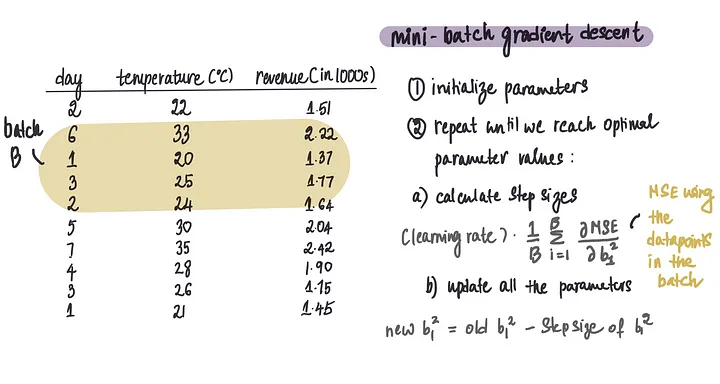 mini-batch gradient descent
day temperature (°C) revenue (in 1000s)
2 22 1.51
6 33 2.22
1 20 1.37
3 25 1.77
2 24 1.64
5 30 2.04
7 35 2.42
4 28 1.90
3 26 1.75
1 21 1.45
batch
B
① initialize parameters
② repeat until we reach optimal
parameter values :
a) calculate step sizes
(learning rate) · 1/B B Σ i=1 ∂MSE/∂b₁²
MSE using
the
datapoints
in the
batch
b) update all the parameters
new b₁² = old b₁² - Step size of b₁²